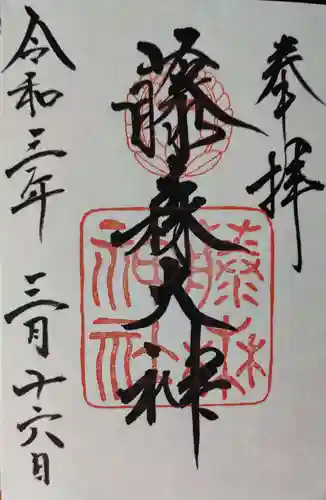 奉拝
藤森大神
藤森
神社
令和三年
三月十六日